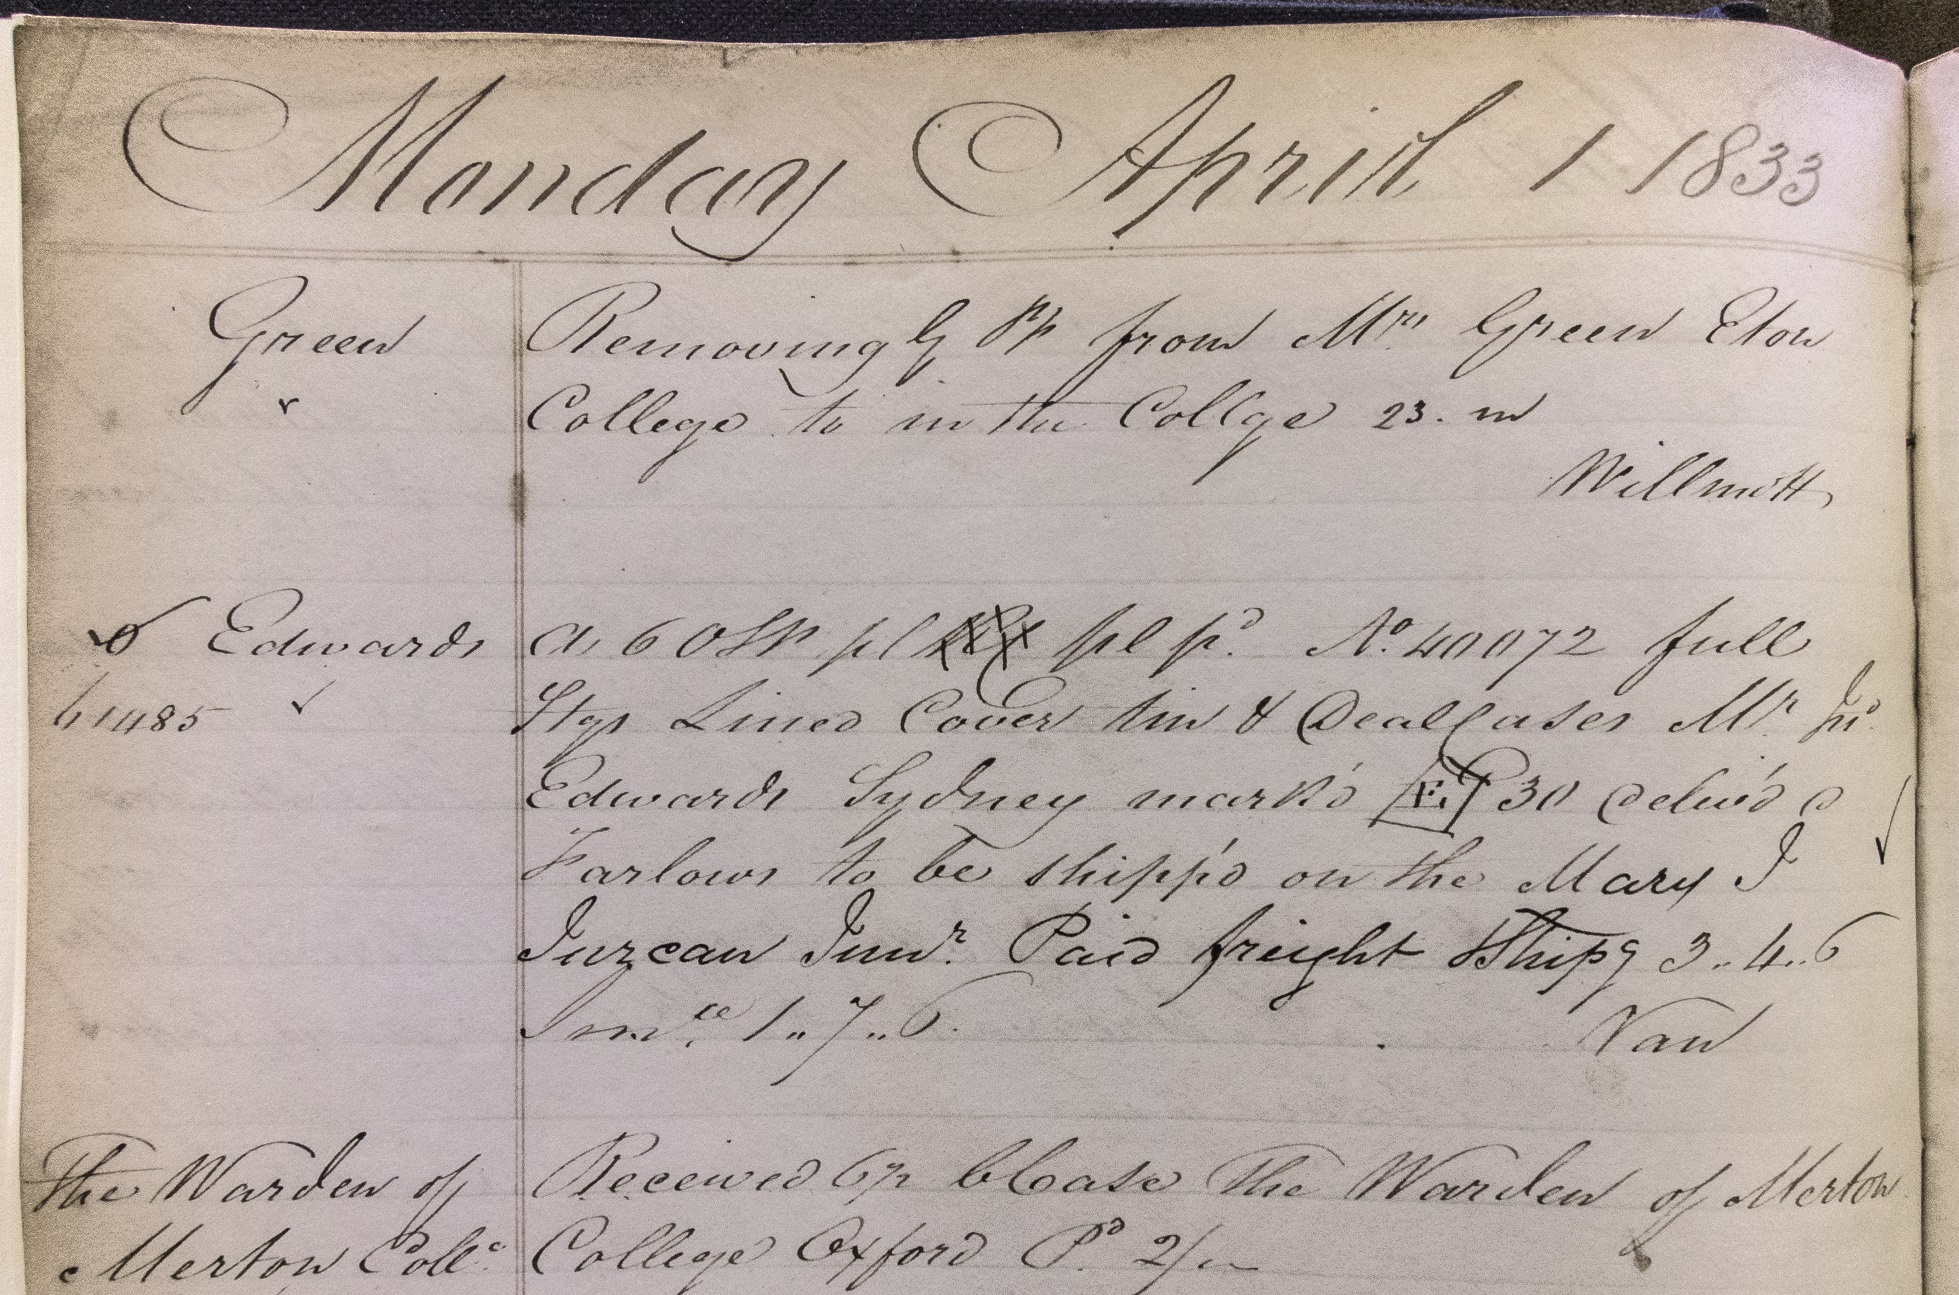 Monday April 1 1833
Green
Removing G Pf from Mrs Green Eton
College to in the Collge 23. m
Willmott
Edwards
a 6 O Sq pl pl pd. No. 40072 full
61485
Stgs Lined Cover tin & Deal Cases Mr Jno.
Edwards Sydney mark'd E 30 deliv'd a
Farlows to be shipp'd on the Mary J
Junr. Paid freight Shipg 3..4..6
1..7..6.
Van
The Warden of
Received Gp Case The Warden of Merton
Merton Colle.
College Oxford Pd. 2/